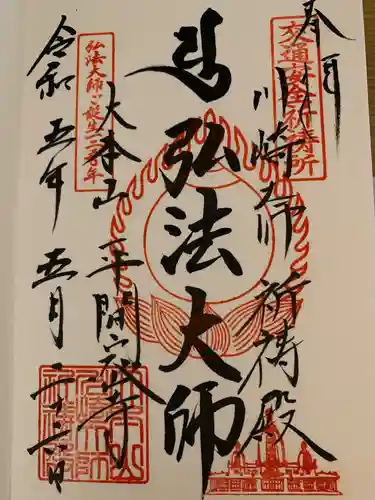 奉拝
交通安全祈祷所
川崎大師 祈祷殿
弘法大師
大本山 平間寺
弘法大師ご誕生一二五〇年
令和五年 五月 二十六日